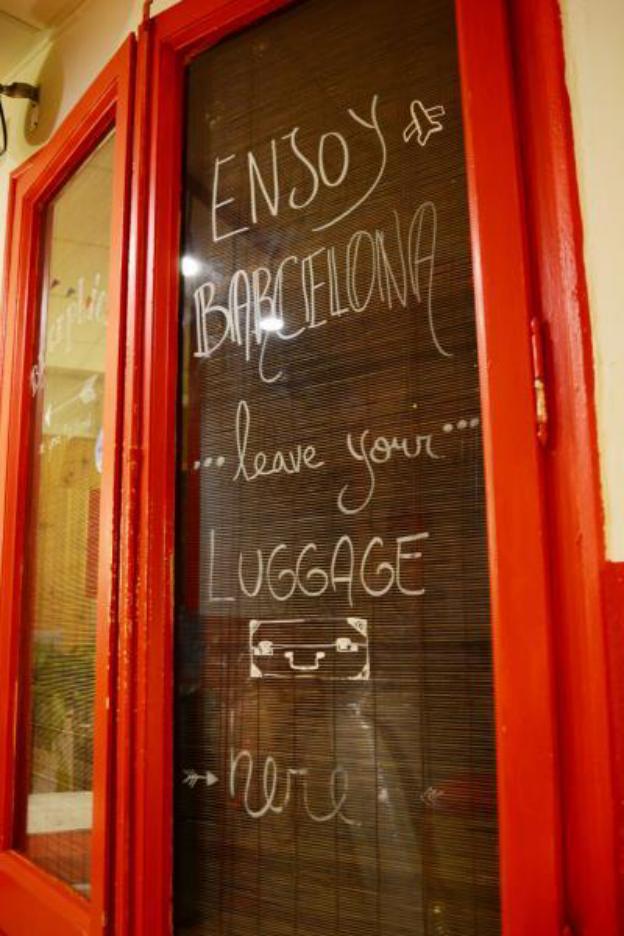 ENJOY
BARCELONA
...leave your...
LUGGAGE
here